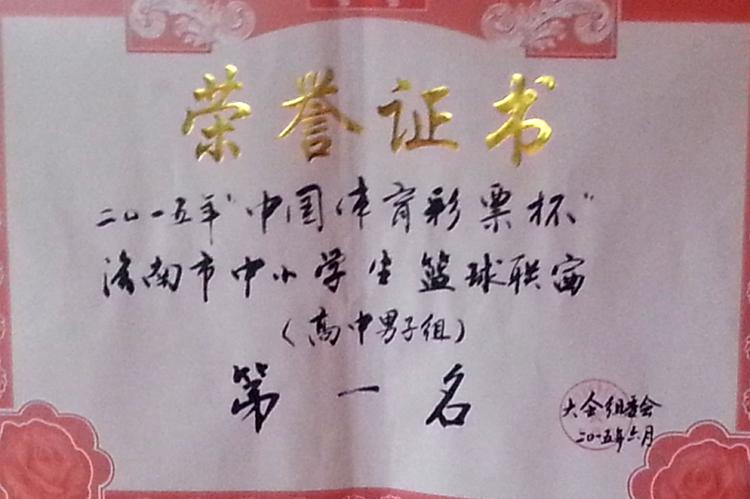 荣誉证书
二〇一五年"中国体育彩票杯"
济南市中小学生篮球联赛
(高中男子组)
第一名
大会组委会
二〇一五年六月